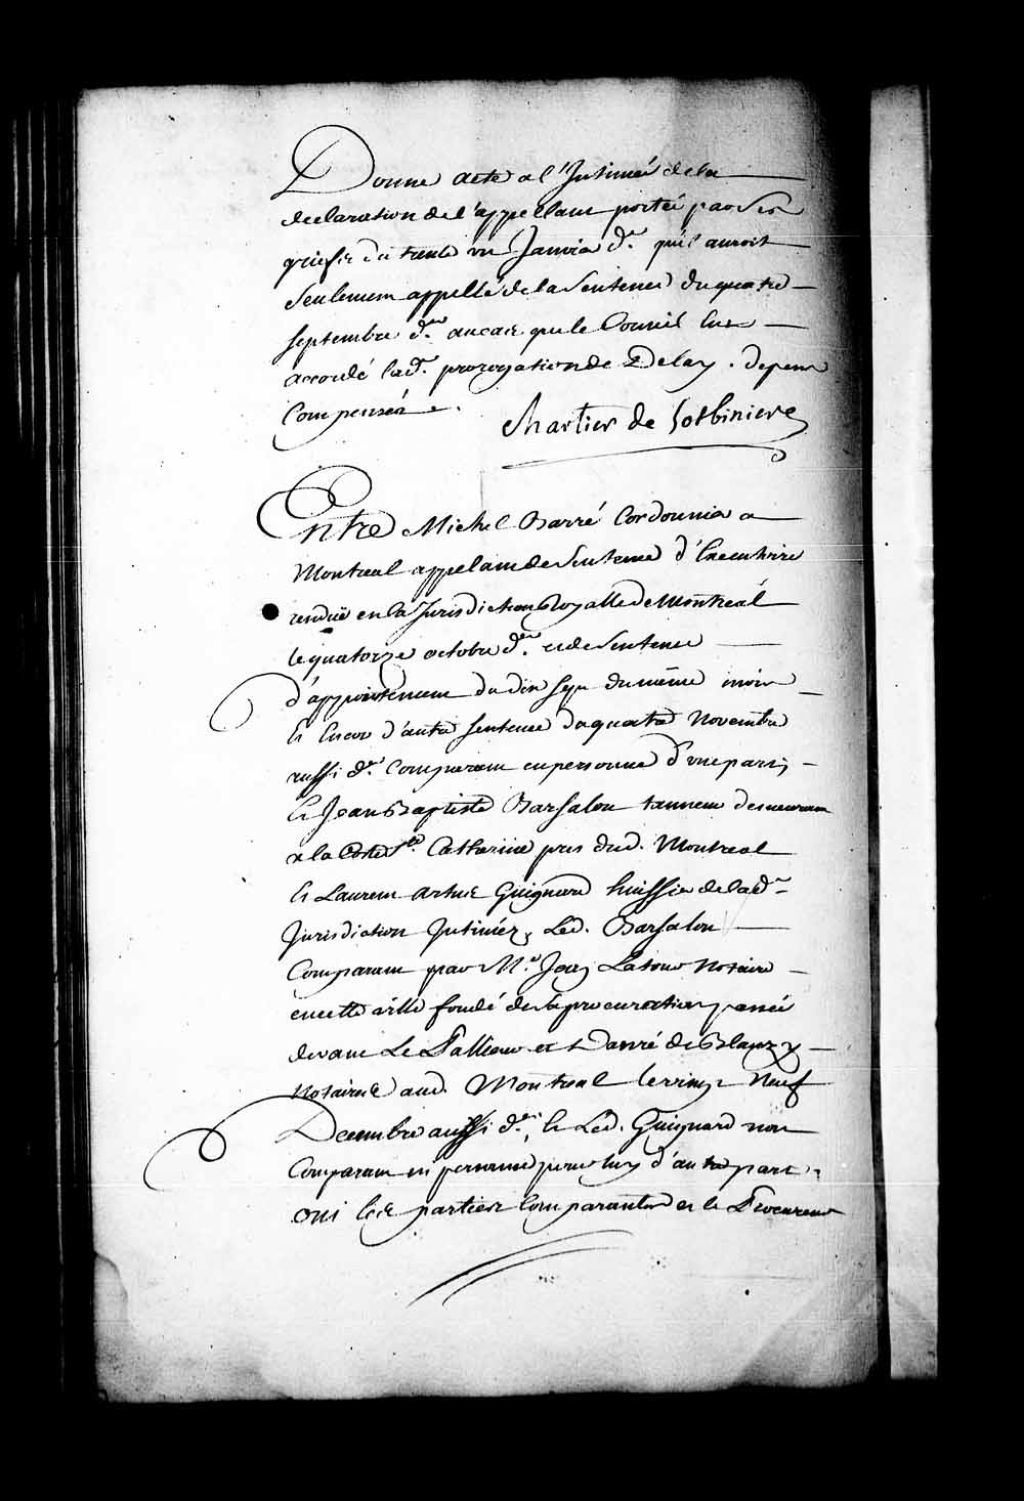 Donne acte a l'Intimé de la
declaration de l'appellant portée par ses
griefs du trente un Janvier d.er qu'il auroit
seulement appellé de la Sentence du quatre
septembre d.er au cas que le Conseil eut
accordé lad. prorogation de Delay. depens
Compensés.
Chartier de Lotbiniere
Entre Michel Barré Cordonnier a
Montreal appelant de Sentence d'
rendüe en la Jurisdiction Royalle de Montreal
le quatorze octobre d.er et de Sentence
d'appointement du dix sept du même mois
Et encor d'autre sentence du quatre Novembre
aussi d.er Comparant en personne d'une part,
Et Jean Baptiste Barsalou tanneur demeurant
a la Coste S.te Catherine pres dud. Montreal
Et Laurent Guignard huissier de lad.
Jurisdiction Intimés, Led. Barsalou
Comparant par M.e Latour Notaire
en cette ville fondé de sa procuration passée
devant Le Pallieur et Danré de Blanzy
Notaires aud. Montreal le vingt Neuf
Decembre aussi d.er, et Led. Guignard non
Comparant ni personne pour luy d'autre part,
Oui les parties Comparantes et le Procureur